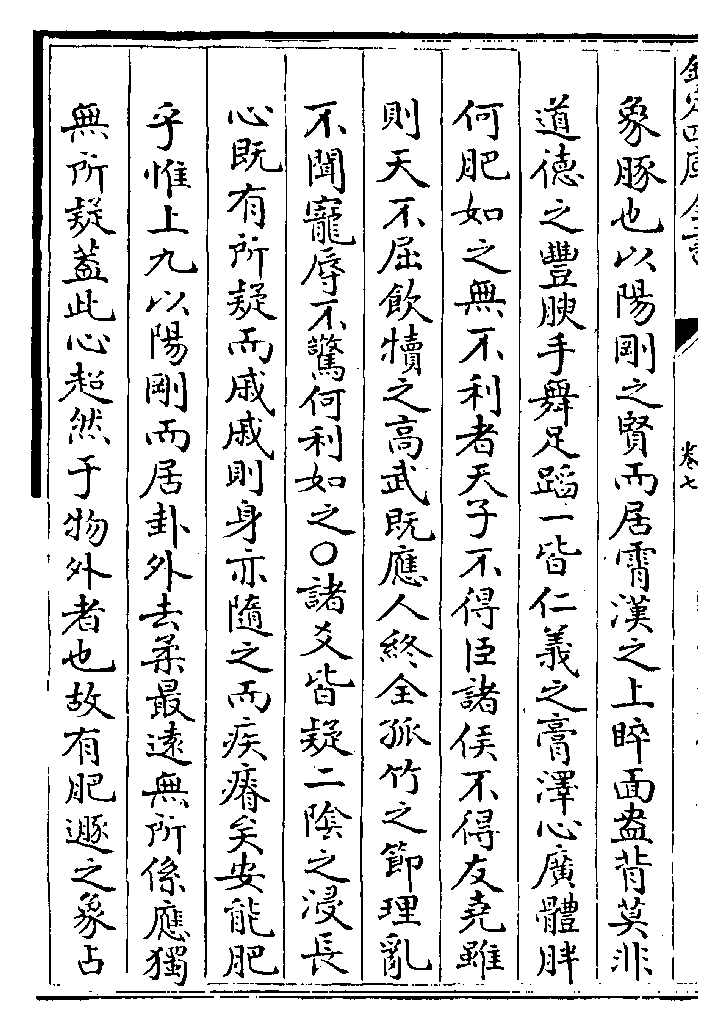 欽定四庫全書
卷七
象豚也以陽剛之賢而居霄漢之上睟面盎背莫非
道德之豐腴手舞足蹈一皆仁義之膏澤心廣體胖
何肥如之無不利者天子不得臣諸侯不得友堯雖
則天不屈飲犢之高武既應人終全孤竹之節理亂
不聞寵辱不驚何利如之○諸爻皆疑二陰之浸長
心既有所疑而戚戚則身亦隨之而疾瘠矣安能肥
乎惟上九以陽剛而居卦外去柔最遠無所係應獨
無所疑蓋此心超然于物外者也故有肥遯之象占